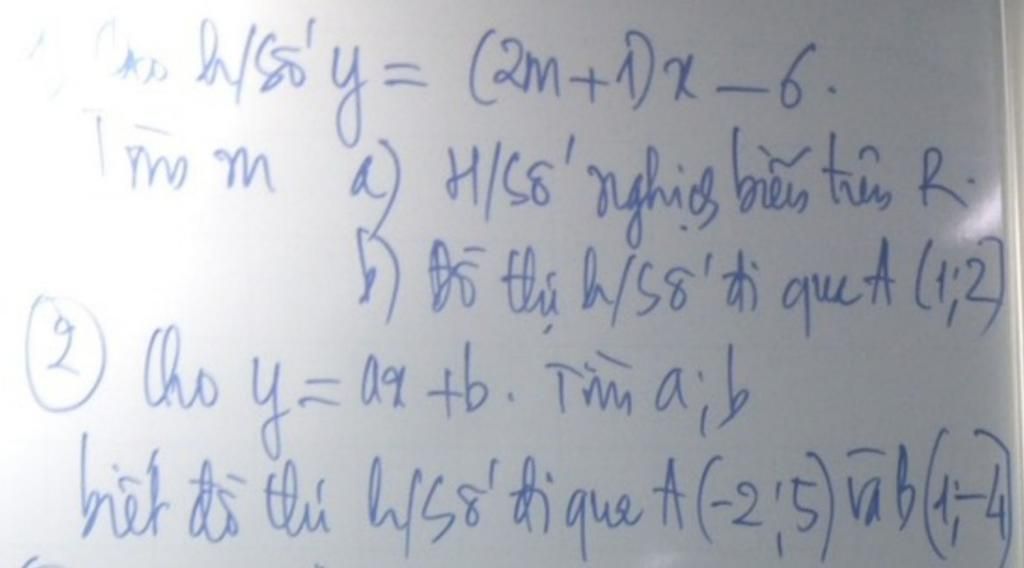 1) Cho h/số y = (2m+1)x - 6.
Tìm m a) H/số nghịch biến trên R.
b) Đồ thị h/số đi qua A (1;2)
2 Cho y = ax + b. Tìm a; b
biết đồ thị h/số đi qua A(-2;5) và b(1;-4)